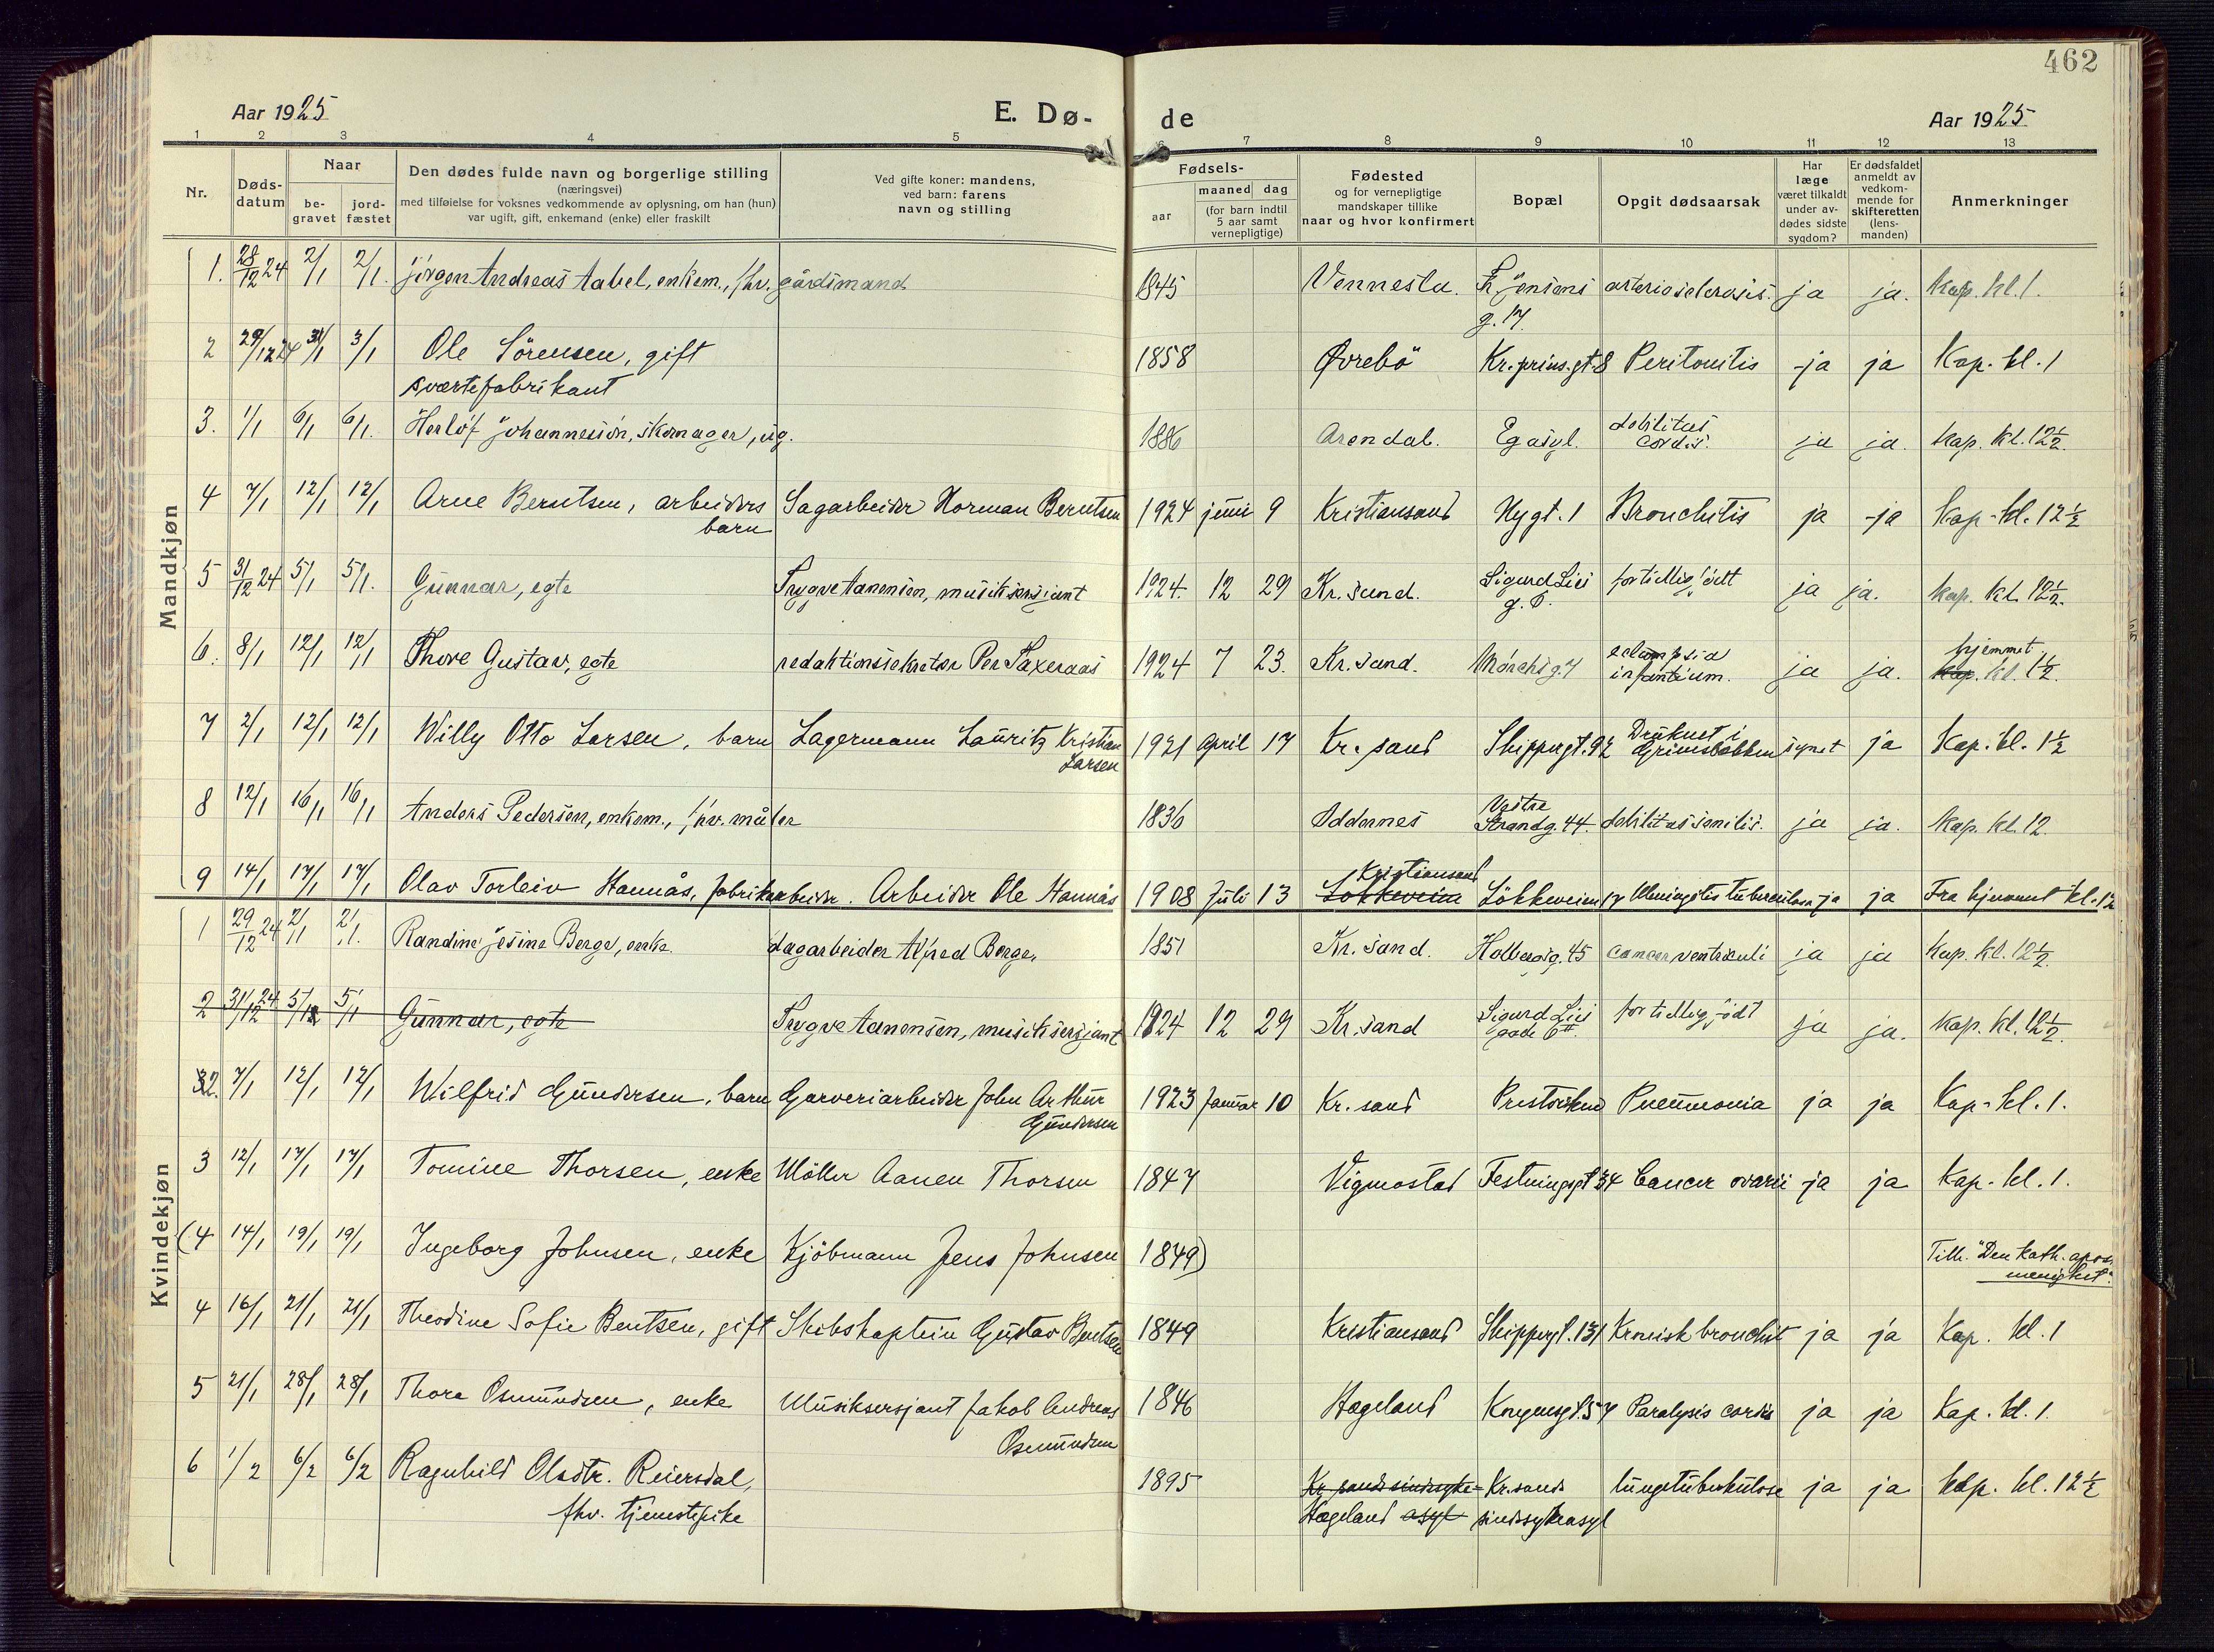 462
Aar 1925
E. Dø-
de
Aar 1925
1 2 3 4 5 6 7 8 9 10 11 12 13
Nr.
Døds-
datum
Naar
be-
gravet
jord-
fæstet
Den dødes fulde navn og borgerlige stilling
(næringsvei)
med tilføielse for voksnes vedkommende av oplysning, om han (hun)
var ugift, gift, enkemand (enke) eller fraskilt
Ved gifte koner: mandens,
ved barn: farens
navn og stilling
Fødsels-
aar
maaned dag
(for barn indtil
5 aar samt
vernepligtige)
Fødested
og for vernepligtige
mandskaper tillike
naar og hvor konfirmert
Bopæl
Opgit dødsaarsak
Har
læge
været tilkaldt
under av-
dødes sidste
sygdom?
Er dødsfaldet
anmeldt av
vedkom-
mende for
skifteretten
(lens-
manden)
Anmerkninger
Mandkjøn
1. 28/12 24 2/1 2/1. Jörgen Andreas Aabel, enkem., fhv. gårdsmand 1845 Vennesla. Fr. Jensens arteriosclerosis. ja ja. Kap. kl. 1.
g. 17.
2 29/12 24 3/1 3/1 Ole Sörensen, gift 1858 Øvrebö Kr. prins. gt. 8 Peritonitis ja ja Kap. kl. 1
sværtefabrikant
3. 1/1 6/1 6/1. Herlöf Johannesson, skomager, ug. 1886 Arendal. Egasyl. debilitas ja ja. Kap. kl. 12½.
cordis.
4 7/1 12/1 12/1 Arne Berntsen, arbeiders Sagarbeider Norman Berntsen 1924 juni 9 Kristiansand Nygt. 1 Bronchitis ja ja Kap. kl. 12½
barn
5 31/12 24 5/1 5/1. Gunnar, egte Trygve Aanensen, musiksersjant 1924. 12 29 Kr.sand. Sigurd Liei for tidlig födt ja ja. Kap. kl. 12½.
g. 6.
6. 8/1 12/1 12/1 Thore Gustav, egte redaktionssekretær Per Saxeraas 1924 7 23. Kr.sand. Mörchsg. 7 eclampsia ja ja. hjemmet
infantium. Kap. kl. 1½.
7 2/1 12/1 12/1 Willy Otto Larsen, barn Lagermann Lauritz Kristian 1921 April 17 Kr.sand Skippergt. 92 Druknet i synet ja Kap. kl. 1½
Larsen Grimsbækken
8 12/1 16/1 16/1 Anders Pedersen, enkem., fhv. måler 1836 Oddernes Vestre debilitas senilis. ja ja. Kap. kl. 12.
Strandg. 44.
9 14/1 17/1 17/1 Olav Torleiv Hannås, fabrikarbeider. Arbeider Ole Hannås 1908 Juli 13 Kristiansand
Lökkeveien Lökkeveien 17 Meningitis tuberculosa ja ja Fra hjemmet kl. 12
Kvindekjøn
1 29/12 24 2/1 2/1. Randine Jesine Berge, enke. dagarbeider Alfred Berge. 1851 Kr.sand. Holbergsg. 45 cancer ventriculi ja ja Kap. kl. 12½.
2 31/12 24 5/1 5/1 Gunnar, egte Trygve Aanensen, musiksersjant 1924 12 29 Kr.sand Sigurd Liei for tidlig födt ja ja. Kap. kl. 12½.
gade 6
2. 7/1 12/1 12/1 Wilfrid Gundersen, barn Garveriarbeider John Arthur 1923 Januar 10 Kr.sand Pneumonia ja ja Kap. kl. 1.
Gundersen
3 12/1 17/1 17/1 Tomine Thorsen, enke Möller Aanen Thorsen 1847 Vigmostad Festningsgt. 34 Cancer ovarii ja ja Kap. kl. 1.
(4 14/1 19/1 19/1 Ingeborg Johnsen, enke Kjöbmann Jens Johnsen 1849) Tilh. "Den kath. apos.
menighet".
4 16/1 21/1 21/1 Theodine Sofie Bentsen, gift Skibskaptein Gustav Bentsen 1849 Kristiansand Skippergt. 131 Kronisk bronchit ja ja Kap. kl. 1
5 21/1 28/1 28/1 Thora Osmundsen, enke Musiksersjant Jakob Andreas 1846 Hægeland Kongensgt. 57 Paralysis cordis ja ja Kap. kl. 1.
Osmundsen
6 1/2 6/2 6/2 Ragnhild Olsdtr. Reiersdal, 1895 Kr.sands sindssyke- Kr.sands lungetuberkulose ja ja Kap. kl. 12½
fhv. tjenestepike Hægeland asyl sindssykeasyl